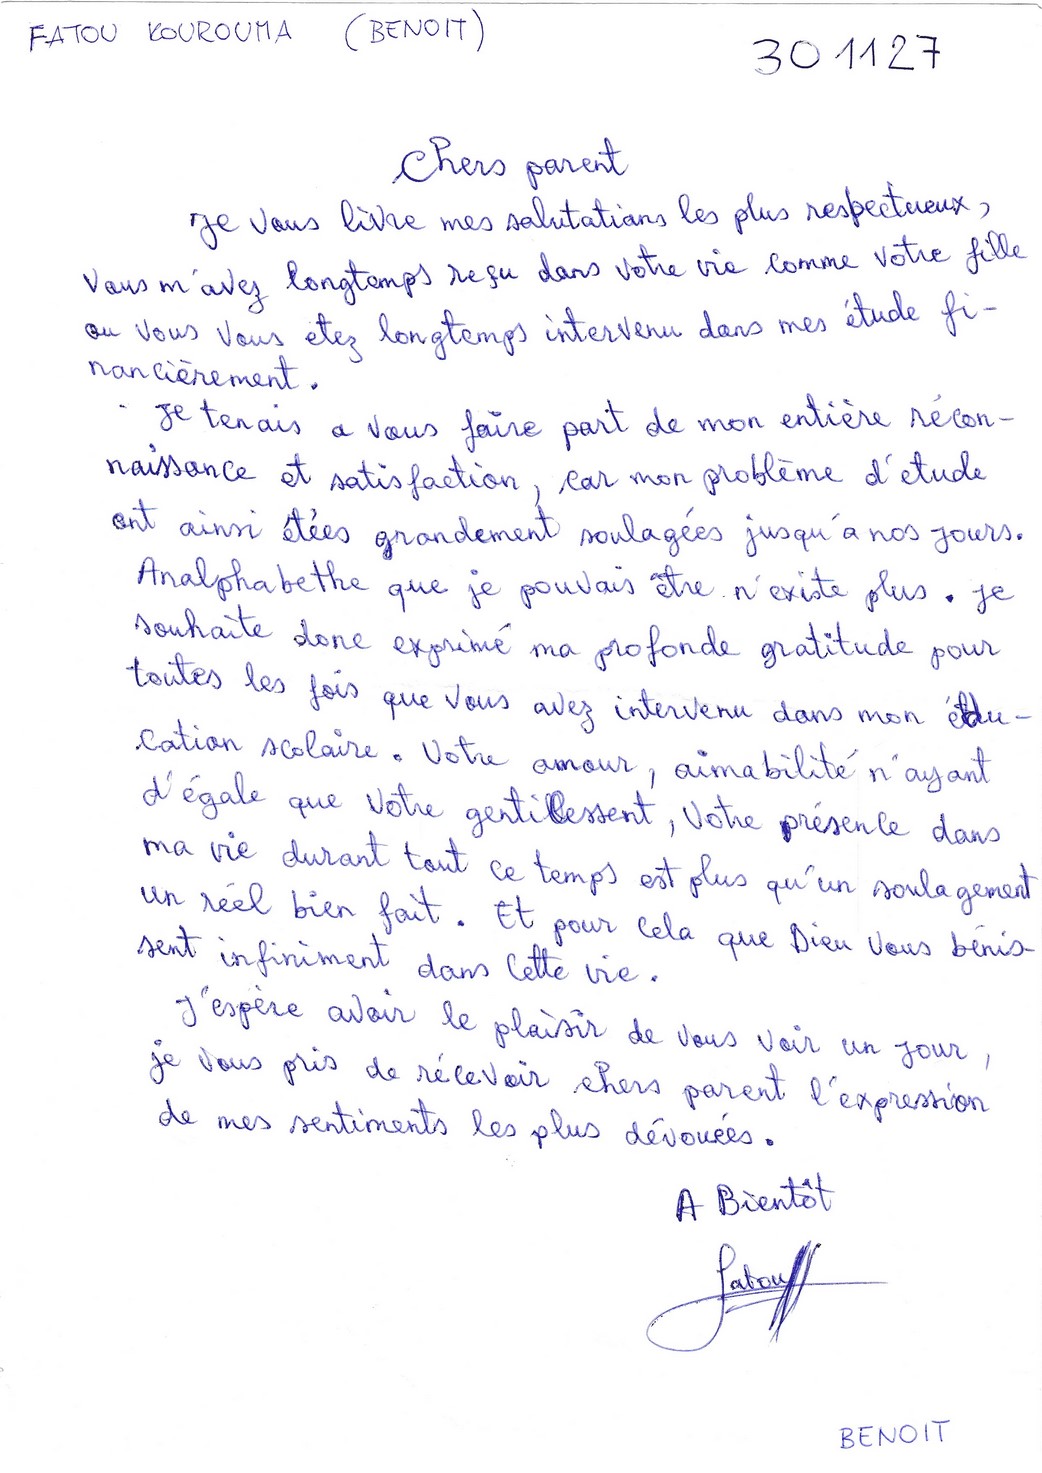 FATOU KOUROUMA (BENOIT)
301127
Chers parent
Je vous livre mes salutatians les plus respectueux,
vous m'avez longtemps reçu dans votre vie comme votre fille
ou vous vous etez longtemps intervenu dans mes étude fi-
nancièrement.
Je tenais a vous faire part de mon entière récon-
naissance et satisfaction, car mon problème d'etude
ont ainsi étées grandement soulagées jusqu'a nos jours.
Analphabethe que je pouvais être n'existe plus. Je
souhaite donc exprimé ma profonde gratitude pour
toutes les fois que vous avez intervenu dans mon édu-
cation scolaire. Votre amour, aimabilité n'ayant
d'égale que votre gentillessent, votre présence dans
ma vie durant tout ce temps est plus qu'un soulagement
un réel bien fait. Et pour cela que Dieu vous bénis-
sent infiniment dans cette vie.
J'espère avoir le plaisir de vous voir un jour,
je vous pris de récevoir chers parent l'expression
de mes sentiments les plus dévouées.
A Bientôt
Fatou
BENOIT